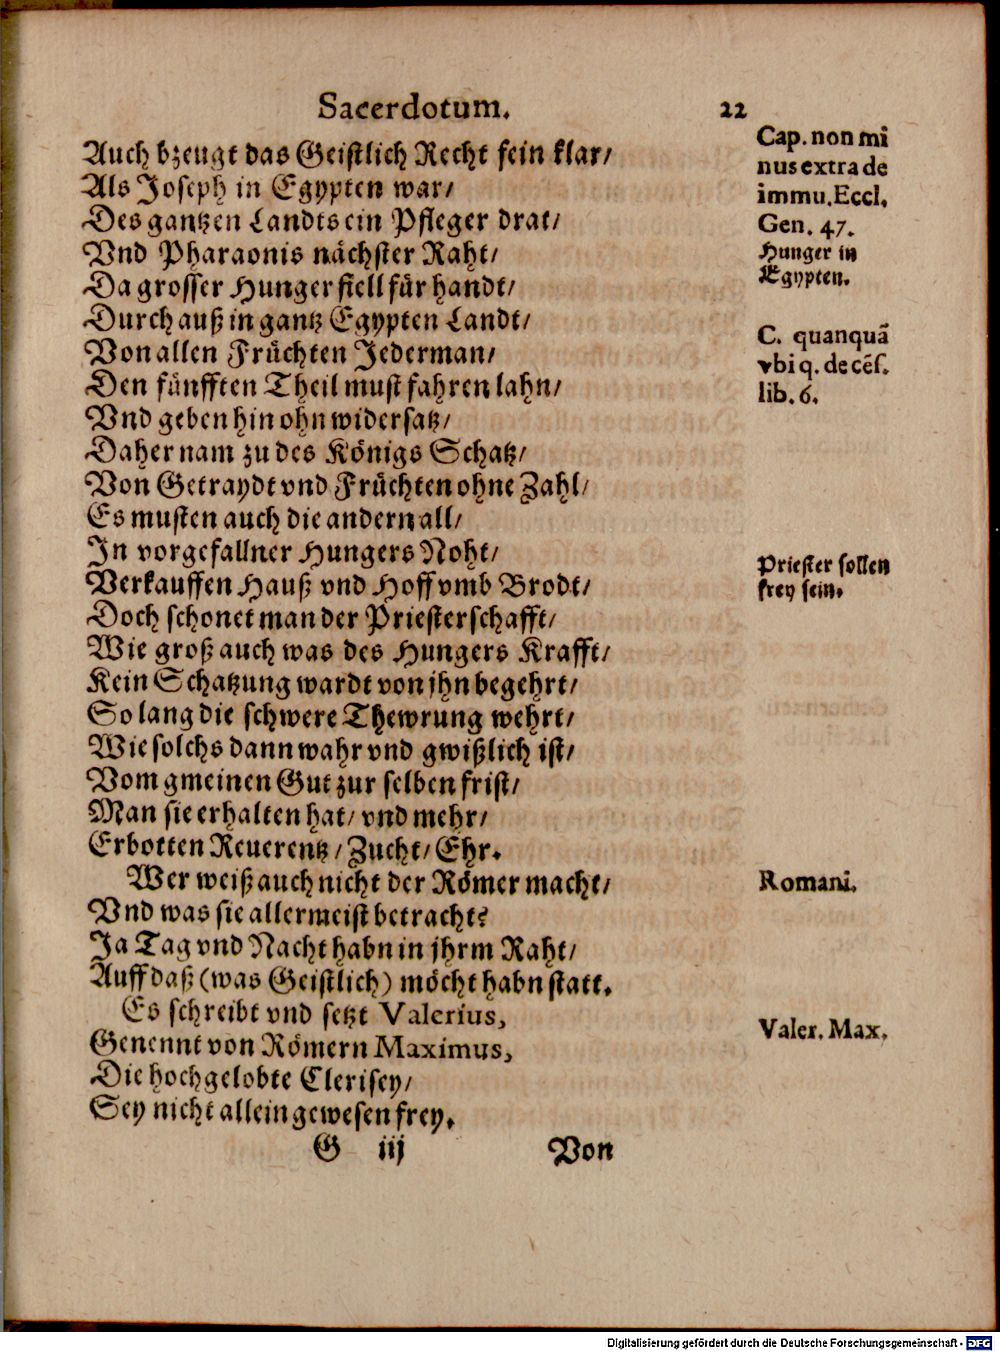 Sacerdotum. 22
Auch bzeugt das Geistlich Recht fein klar/
Als Joseph in Egypten war/
Des gantzen Landts ein Pfleger drat/
Vnd Pharaonis nächster Raht/
Da grosser Hunger fiell für handt/
Durch auß in gantz Egypten Landt/
Von allen Früchten Jederman/
Den fünfften Theil must fahren lahn/
Vnd geben hin ohn widersatz/
Daher nam zu des Königs Schatz/
Von Getraydt vnd Früchten ohne Zahl/
Es musten auch die andern all/
In vorgefallner Hungers Noht/
Verkauffen Hauß vnd Hoff vmb Brodt/
Doch schonet man der Priesterschafft/
Wie groß auch was des Hungers Krafft/
Kein Schatzung wardt von jhn begehrt/
So lang die schwere Thewrung wehrt/
Wie solchs dann wahr vnd gwißlich ist/
Vom gmeinen Gut zur selben frist/
Man sie erhalten hat/ vnd mehr/
Erbotten Reuerentz/ Zucht/ Ehr.
Wer weiß auch nicht der Römer macht/
Vnd was sie allermeist betracht?
Ja Tag vnd Nacht habn in jhrm Raht/
Auff daß (was Geistlich) möcht habn statt.
Es schreibt vnd setzt Valerius,
Genennt von Römern Maximus,
Die hochgelobte Clerisey/
Sey nicht allein gewesen frey.
G iij Von
Cap. non mi
nus extra de
immu. Eccl.
Gen. 47.
Hunger in
Egypten.
C. quanquã
vbi q. de cẽs.
lib. 6.
Priester sollen
frey sein.
Romani.
Valer. Max.
Digitalisierung gefördert durch die Deutsche Forschungsgemeinschaft - DFG